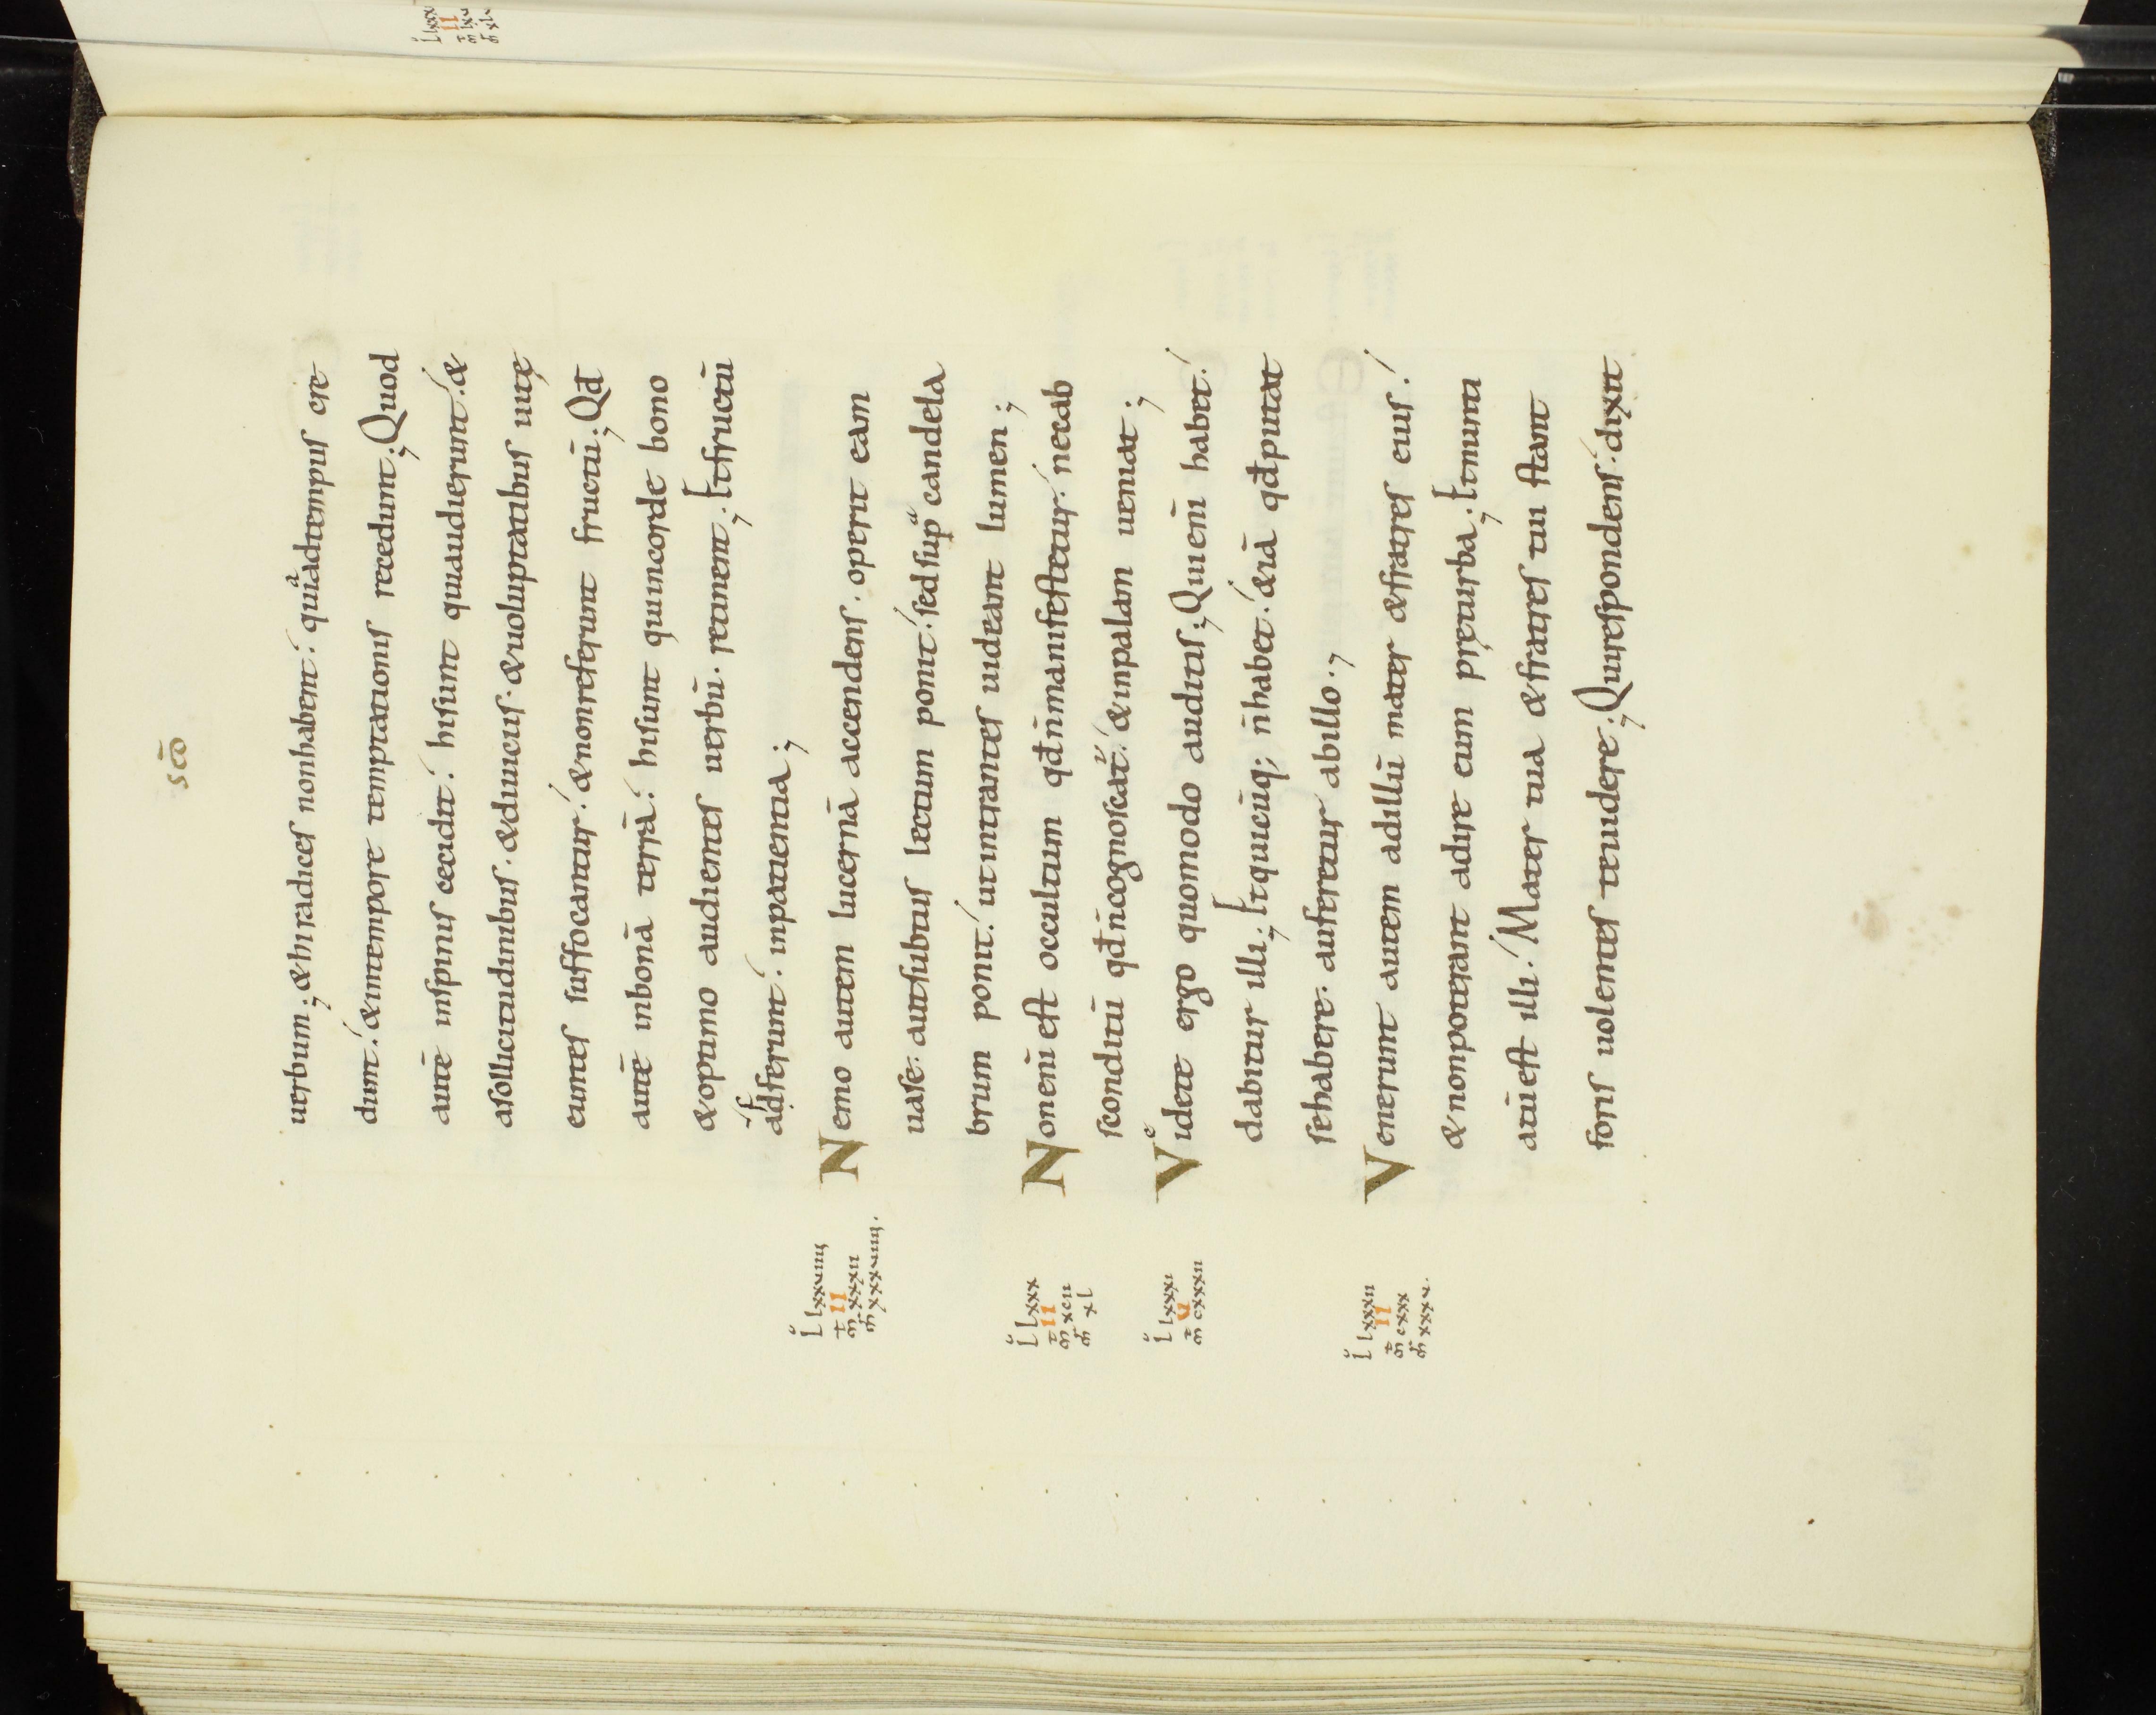 scō
uerbum; & hi radices non habent. quia ad tempus cre
dunt. & in tempore temptationis recedunt; Quod
autē in spinis cecidit. hi sunt qui audierunt. &
a sollicitudinibus. & diuiciis. & uoluptatibus uitę
euntes suffocantur. & non referunt fructū; Qđ
autē in bonā terrā. hi sunt qui in corde bono
& optimo audientes uerbū. retinent. et fructū
adferunt. in patientia;
Nemo autem lucernā accendens. operit eam
uase. aut subtus lectum ponit. sed sup candela
brum ponit. ut intrantes uideant lumen;
Non enī est occultum qđ n̄ manifestetur. nec ab
sconditū qđ n̄ cognoscat. & in palam ueniat;
Videte ergo quomodo auditis; Qui enī habet.
dabitur illi; et quicūq; n̄ habet. & iā qđ putat
se habere. auferetur ab illo;
Venerunt autem ad illū mater & fratres eius.
& non poterant adire eum prę turba; et nuntia
atū est illi. Mater tua & fratres tui stant
foris uolentes te uidere; Qui respondens. dixit
lū lxxuiiii
II
mt xxxii
mr xxxuiiii.
lū lxxx
II
mt xcii
mr xl
lū lxxxi
u
mt cxxxii
lū lxxxii
II
mt cxxx
mr xxxu.